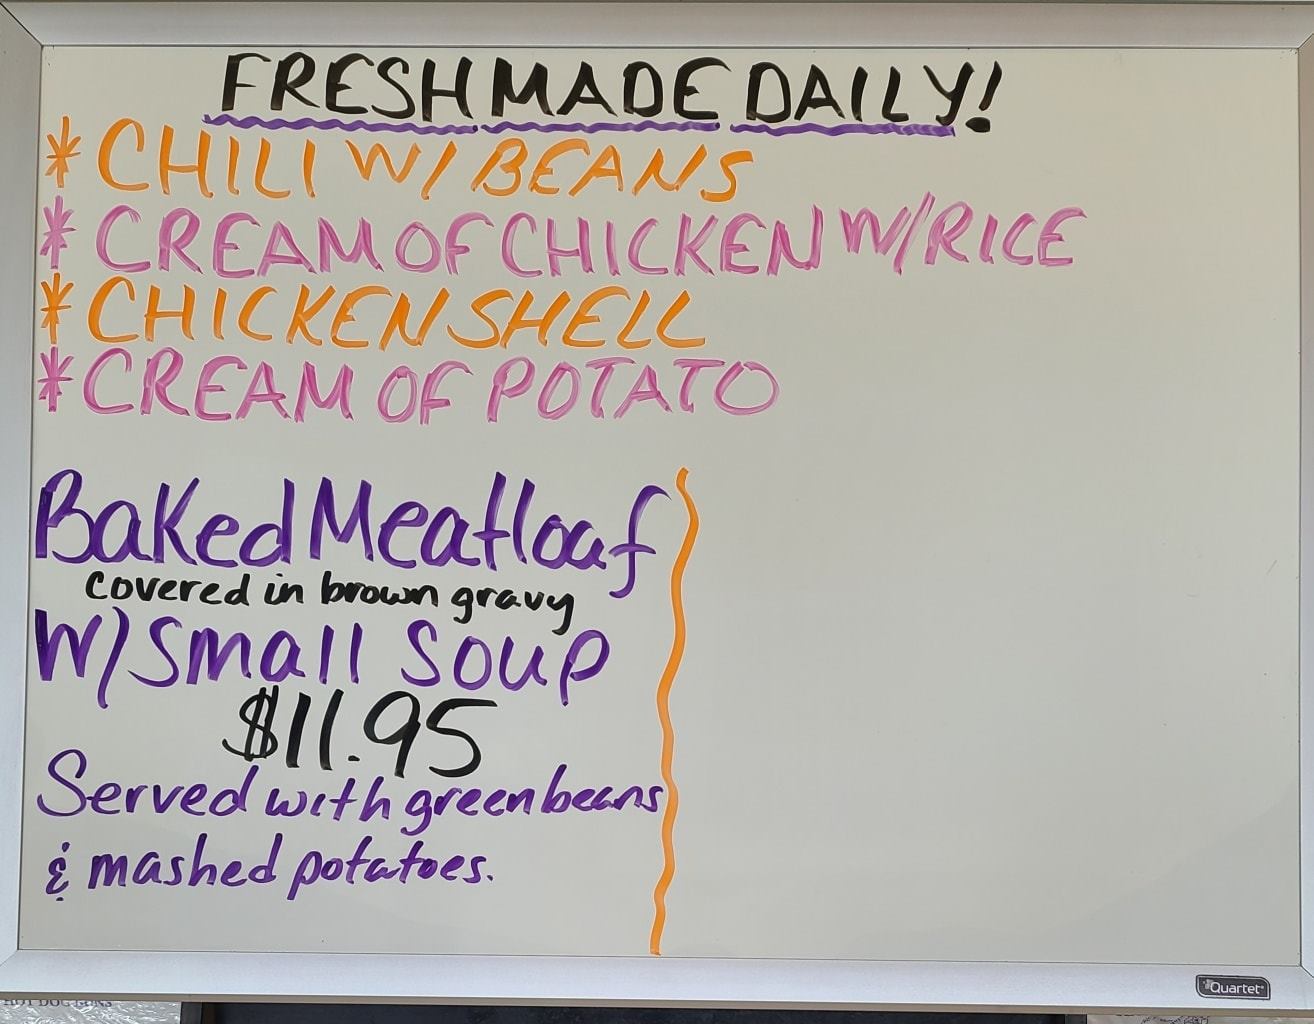 FRESH MADE DAILY!
* CHILI W/ BEANS
* CREAM OF CHICKEN W/RICE
* CHICKEN SHELL
* CREAM OF POTATO
Baked Meatloaf
covered in brown gravy
W/Small Soup
$11.95
Served with green beans
& mashed potatoes.
Quartet